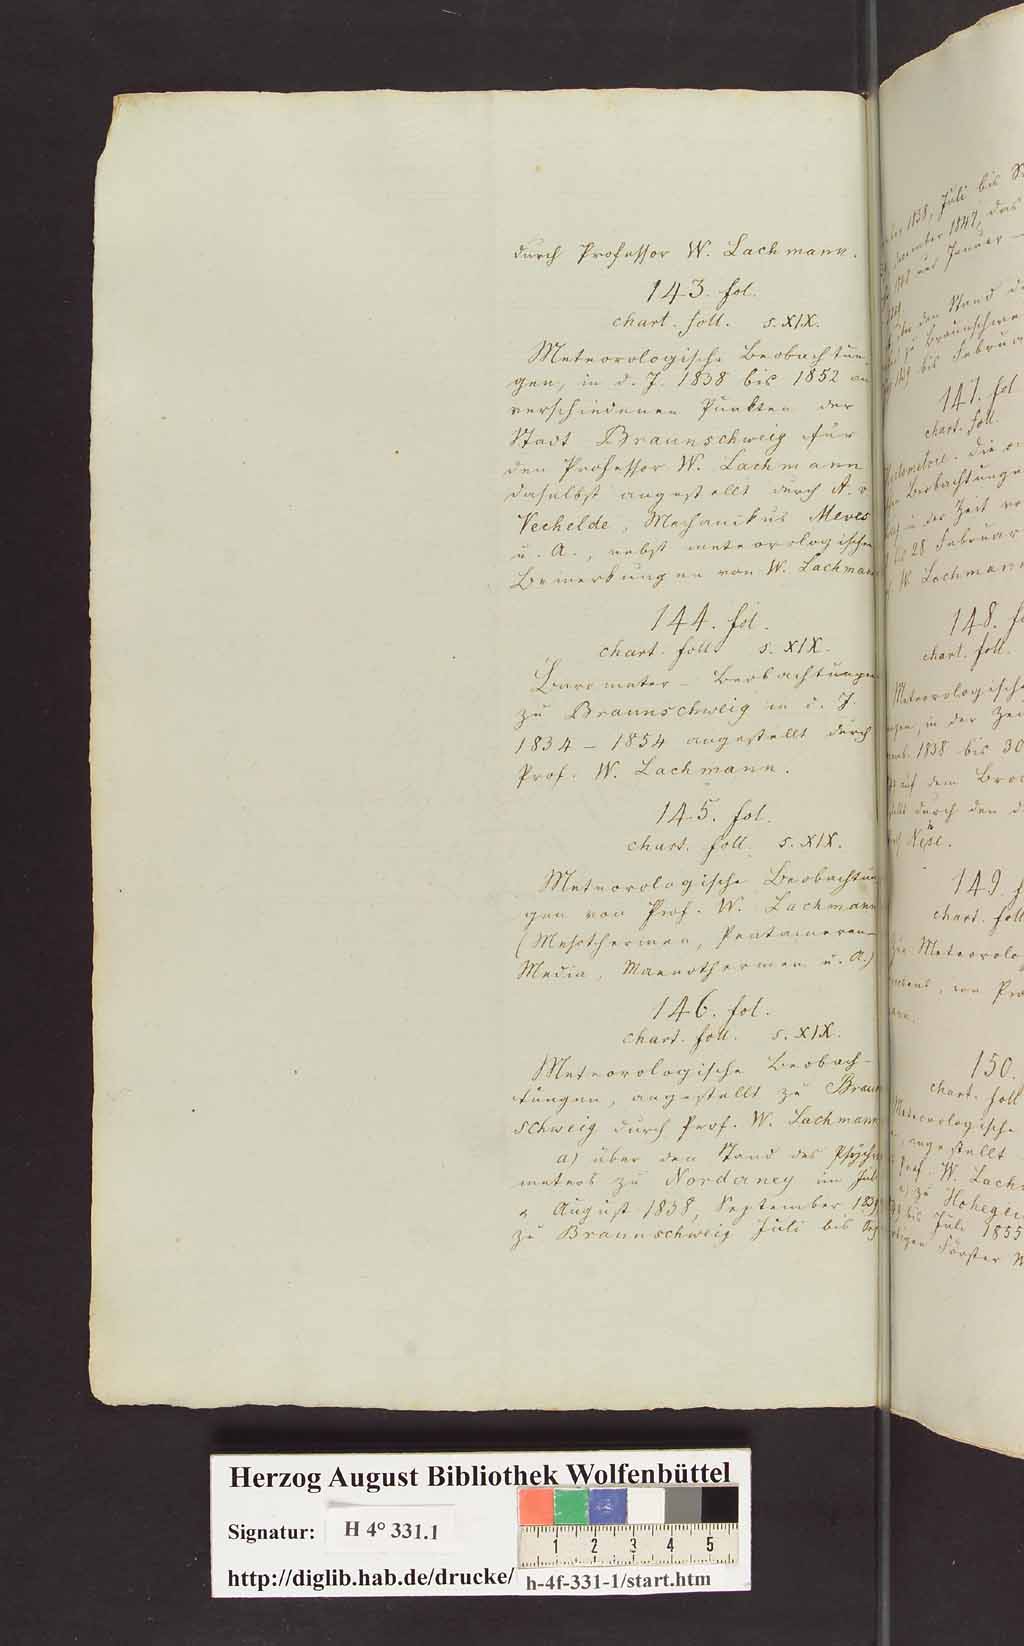 durch Professor W. Lachmann.
143. fol.
chart. foll. s. XIX.
Meteorologische Beobachtun
gen, in d. J. 1838 bis 1852 an
verschiedenen Punkten der
Stadt Braunschweig für
den Professor W. Lachmann
daselbst angestellt durch A. v.
Vechelde, Mechanikus Meves
u. A., nebst meteorologischen
Bemerkungen von W. Lachmann
144. fol.
chart. foll. s. XIX.
Barometer - Beobachtungen
zu Braunschweig in d. J.
1834 - 1854 angestellt durch
Prof. W. Lachmann.
145. fol.
chart. foll. s. XIX.
Meteorologische Beobachtun
gen von Prof. W. Lachmann
(Mesothermen, Pentameren-
Media, u. A.)
146. fol.
chart. foll. s. XIX.
Meteorologische Beobach-
tungen, angestellt zu Braun
schweig durch Prof. W. Lachmann
a) über den Stand des Psychro
meters zu Norderney im Juli
August 1838, September 1839
zu Braunschweig Juli bis Sep
1838, Juli bis
1847, das
Januar
den Stand
zu Braunschwe
bis Februa
147. fol
chart. foll.
die
Beobachtunge
in der Zeit vo
28 Februar
W. Lachmann
148. fo
chart. foll.
Meteorologische
in der Zei
1838 bis 30
auf dem Broc
durch den
Nese.
149. f
chart. foll
Meteorolo
von Pro
150.
chart. foll
Meteorologische
angestellt
Prof. W. Lach
zu Hohegei
bis Juli 1855
Förster W
Herzog August Bibliothek Wolfenbüttel
Signatur: H 4° 331.1
1 2 3 4 5
http://diglib.hab.de/drucke/ h-4f-331-1/start.htm